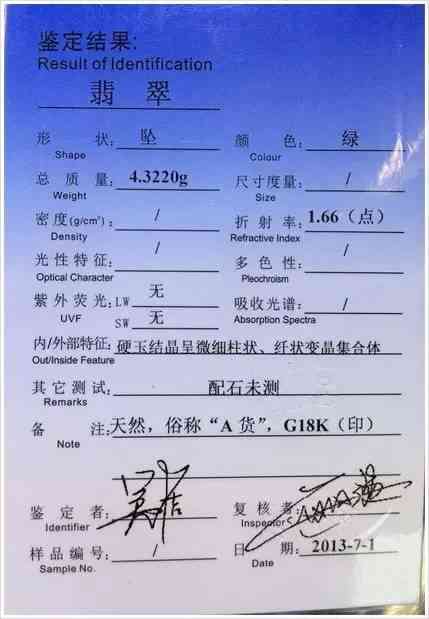 鉴定结果:
Result of Identification
翡 翠
形 状: 坠 颜 色: 绿
Shape Colour
总 质 量: 4.3220g 尺寸度量: /
Weight Size
密 度(g/cm³): / 折 射 率: 1.66（点）
Density Refractive Index
光 性 特 征: / 多 色 性: /
Optical Character Pleochroism
紫 外 荧 光: LW 无 吸收光谱: /
UVF SW 无 Absorption Spectra
内/外部特征: 硬玉结晶呈微细柱状、纤状变晶集合体
Out/Inside Feature
其 它 测 试: 配石未测
Remarks
备 注: 天然，俗称“A 货”，G18K（印）
Note
鉴 定 者: 复 核 者:
Identifier Inspector
样 品 编 号: / 日 期: 2013-7-1
Sample No. Date